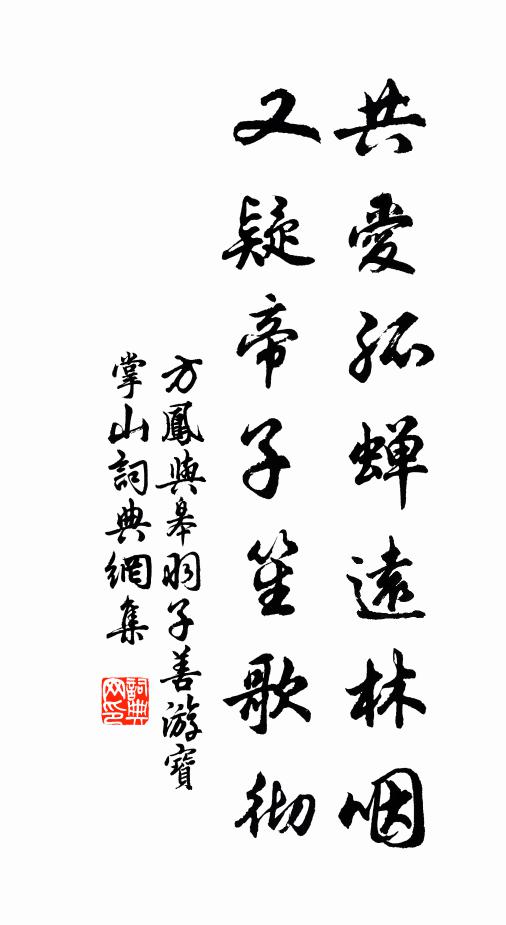 共愛孤蟬遠林咽
又疑帝子笙歌彻
方鳳與皋羽子善游寶
掌山詞典網集
詞典網印